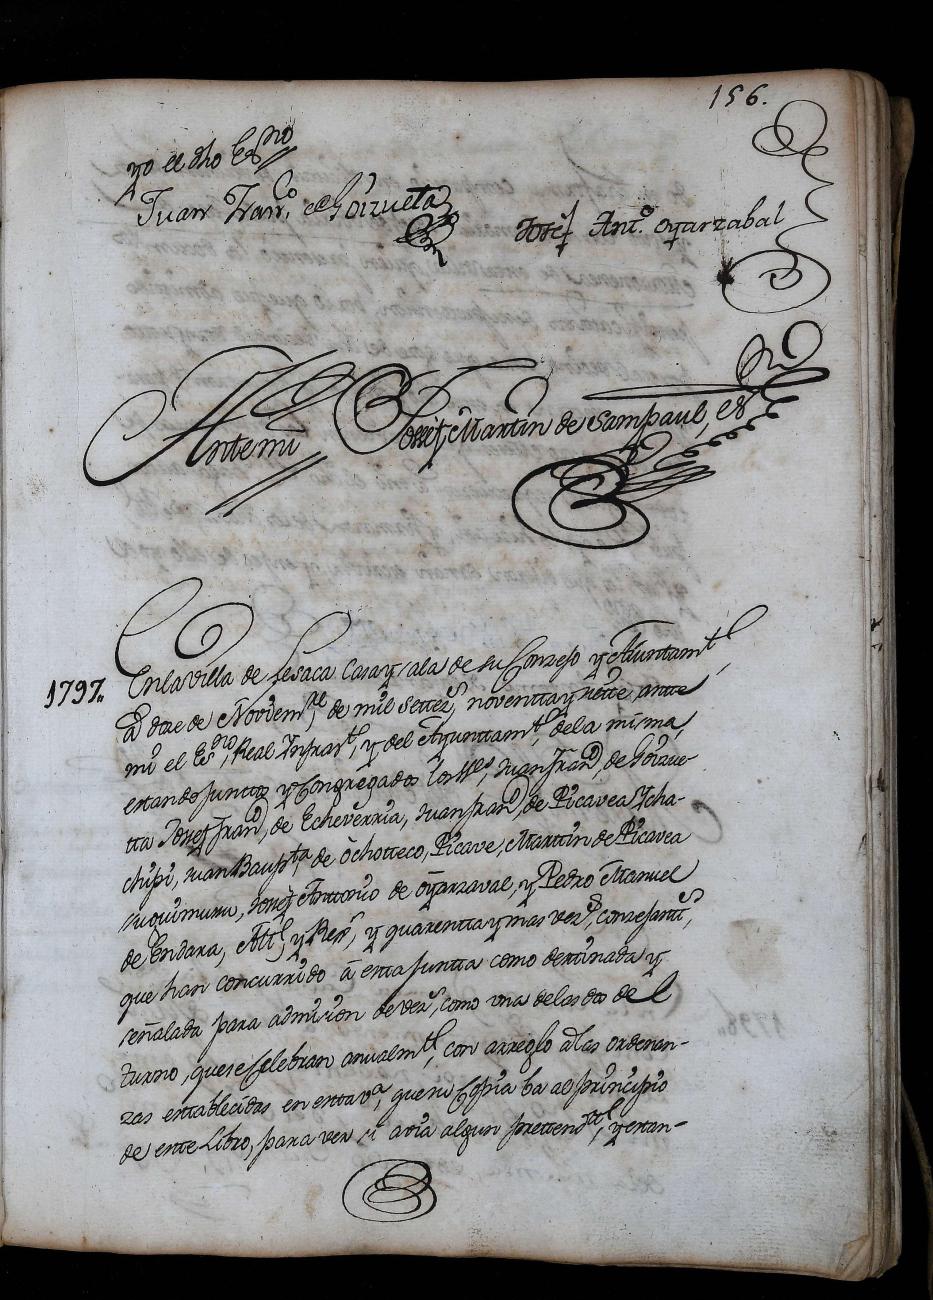 156.
yo el dho Esno
Juan Franco. de Goizueta
Josef Anto. oyarzabal
Antemi Josef Martin de Sampaul, es
1797.
En la Villa de Lesaca Casa y sala de su Conzejo y Ayuntamtо,
à doze de Noviemre de mil settezs noventta y siette, antte
mi el Esno Real Infraто, y del Ayunttamto dela misma,
estando junttos y Congregados los SSes, Juan Franco de Goizue-
tta Josef Franco de Echeverria, Juan Franco de Picavea Ycha-
chipi, Juan Baupta de Ochotteco, Picave, Marttin de Picavea
, Josef Antonio de oyarzaval, y Pedro Manuel
de Endara, Alle, y Rexs, y quarentta y mas vezs, conzejantes,
que han concurrido à esta juntta como destinada y
señalada para admision de vezs, como una delas dos de el
turno, que se selebran anualmte, con arreglo à las ordenan-
zas establecidas en esta va, que su Copia ba al prinzipio
de este Libro, para ver si avia algun prettendte, y estan-